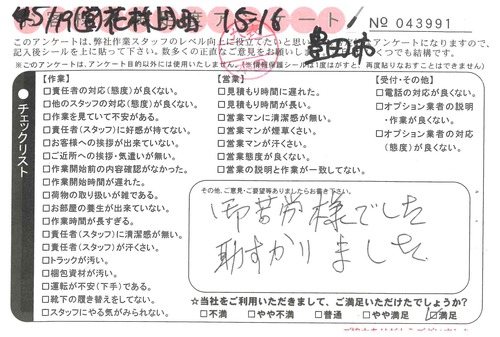 15-16
豊田市
アンケート
№ 043991
このアンケートは、弊社作業スタッフのレベル向上に役立てたいと思い
記入後シールを上に貼って下さい。数多くの正直なご意見をお願いしま
アンケートになりますので、
くつでも結構です。
※このアンケートは、アンケート目的以外には使用いたしません。(※情報保護シールは1度はがすと、再度貼りなおすことはできません)
チェックリスト
【作業】
□責任者の対応(態度)が良くない。
□他のスタッフの対応(態度)が良くない。
□作業を見ていて不安がある。
□責任者(スタッフ)に好感が持てない。
□お客様への挨拶が出来ていない。
□ご近所への挨拶・気遣いが無い。
□作業開始前の内容確認がなかった。
□作業開始時間が遅れた。
□荷物の取り扱いが雑である。
□お部屋の養生が出来ていない。
□作業時間が長すぎる。
□責任者(スタッフ)に清潔感が無い。
□責任者(スタッフ)が汗くさい。
□トラックが汚い。
□梱包資材が汚い。
□運転が不安(下手)である。
□靴下の履き替えをしてない。
□スタッフにやる気がみられない。
【営業】
□見積もり時間に遅れた。
□見積もり時間が長い。
□営業マンに清潔感が無い。
□営業マンが煙草くさい。
□営業マンが汗くさい。
□営業態度が良くない。
□営業の説明と作業が一致してない。
【受付・その他】
□電話の対応が良くない。
□オプション業者の説明
・作業が良くない。
□オプション業者の対応
(態度)が良くない。
その他、ご意見・ご要望等ありましたらお書き下さい。
御苦労様でした
助すかりました
☆当社をご利用いただきまして、ご満足いただけたでしょうか?
□不満 □やや不満 □普通 □やや満足 ☑満足